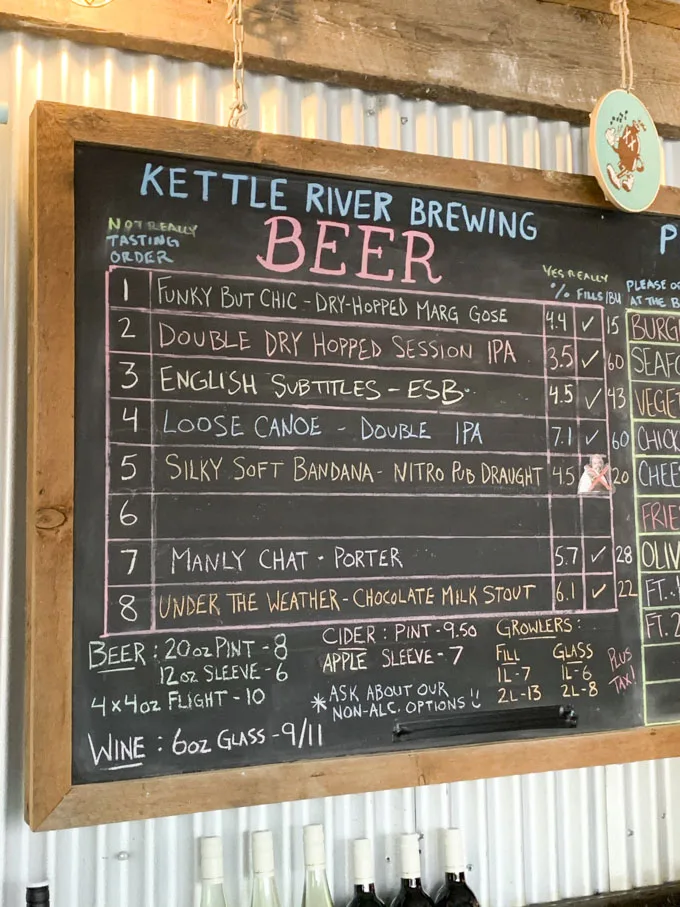 KETTLE RIVER BREWING
BEER
NOT REALLY
TASTING
ORDER
YES REALLY
% FILLS IBU
1 FUNKY BUT CHIC - DRY-HOPPED MARG GOSE 4.4 ✓ 15
2 DOUBLE DRY HOPPED SESSION IPA 3.5 ✓ 60
3 ENGLISH SUBTITLES - ESB 4.5 ✓ 43
4 LOOSE CANOE - DOUBLE IPA 7.1 ✓ 60
5 SILKY SOFT BANDANA - NITRO PUB DRAUGHT 4.5 20
6
7 MANLY CHAT - PORTER 5.7 ✓ 28
8 UNDER THE WEATHER - CHOCOLATE MILK STOUT 6.1 ✓ 22
BEER: 20oz PINT - 8
12oz SLEEVE - 6
4x4oz FLIGHT - 10
WINE: 6oz GLASS - 9/11
CIDER: PINT - 9.50
APPLE SLEEVE - 7
*ASK ABOUT OUR
NON-ALC. OPTIONS!!
GROWLERS:
FILL GLASS
1L-7 1L-6
2L-13 2L-8
PLUS
TAX!
P
PLEASE O
AT THE B
BURG
SEAFO
VEGET
CHICK
CHEES
FRIE
OLIV
FT.
FT. 2